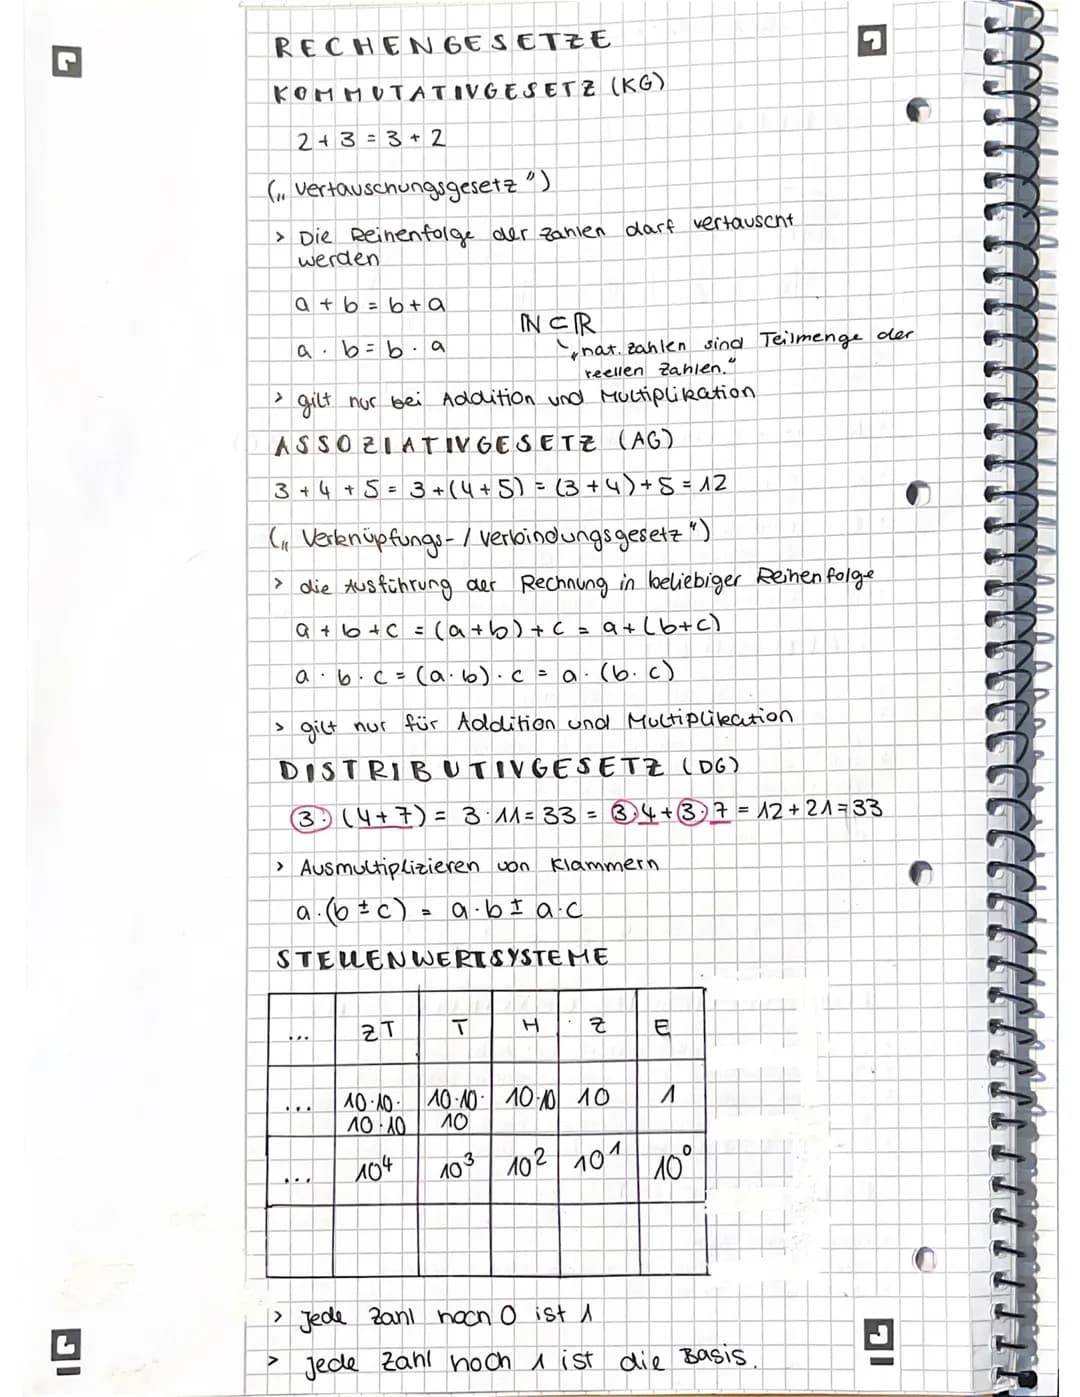 RECHENGESETZE
KOMMUTATIVGESETZ (KG)
2 + 3 = 3 + 2
(„Vertauschungsgesetz")
> Die Reihenfolge der Zahlen darf vertauscht
werden
a + b = b + a
ℕ ⊂ ℝ
a · b = b · a
„nat. Zahlen sind Teilmenge der
reellen Zahlen."
> gilt nur bei Addition und Multiplikation
ASSOZIATIVGESETZ (AG)
3 + 4 + 5 = 3 + (4 + 5) = (3 + 4) + 5 = 12
(„Verknüpfungs- / Verbindungsgesetz")
> die Ausführung der Rechnung in beliebiger Reihenfolge
a + b + c = (a + b) + c = a + (b + c)
a · b · c = (a · b) · c = a · (b · c)
> gilt nur für Addition und Multiplikation
DISTRIBUTIVGESETZ (DG)
3 · (4 + 7) = 3 · 11 = 33 = 3 · 4 + 3 · 7 = 12 + 21 = 33
> Ausmultiplizieren von Klammern
a · (b ± c) = a · b ± a · c
STELLENWERTSYSTEME
... ZT T H Z E
... 10·10· 10·10· 10·10 10 1
10·10 10
... 10⁴ 10³ 10² 10¹ 10⁰
> Jede Zahl hoch 0 ist 1
> Jede Zahl hoch 1 ist die Basis.